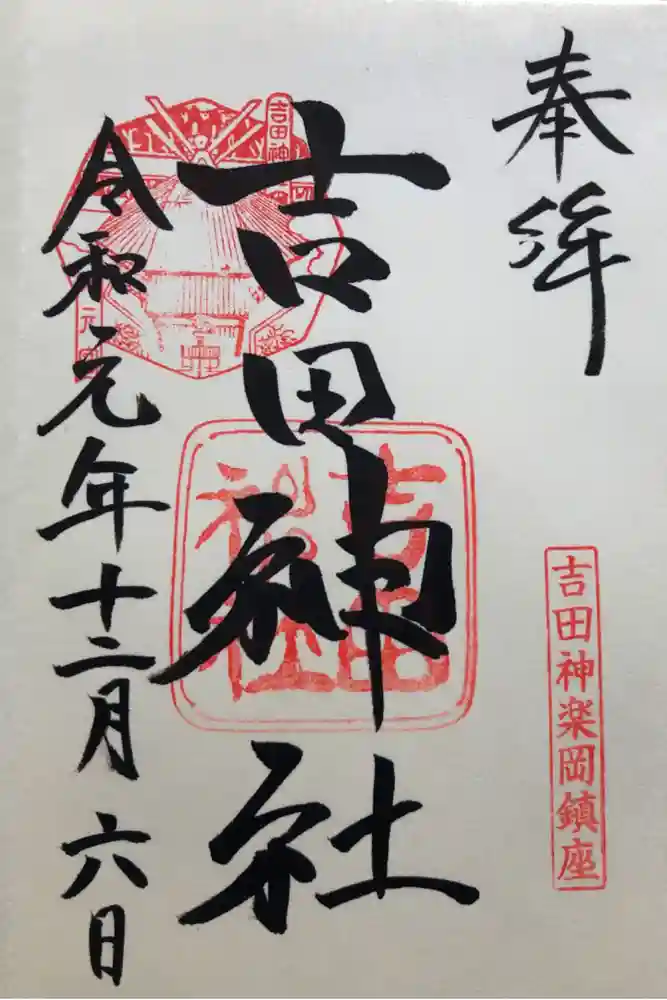 奉拝
吉田神楽岡鎮座
吉田神社
吉田神社
令和元年十二月六日